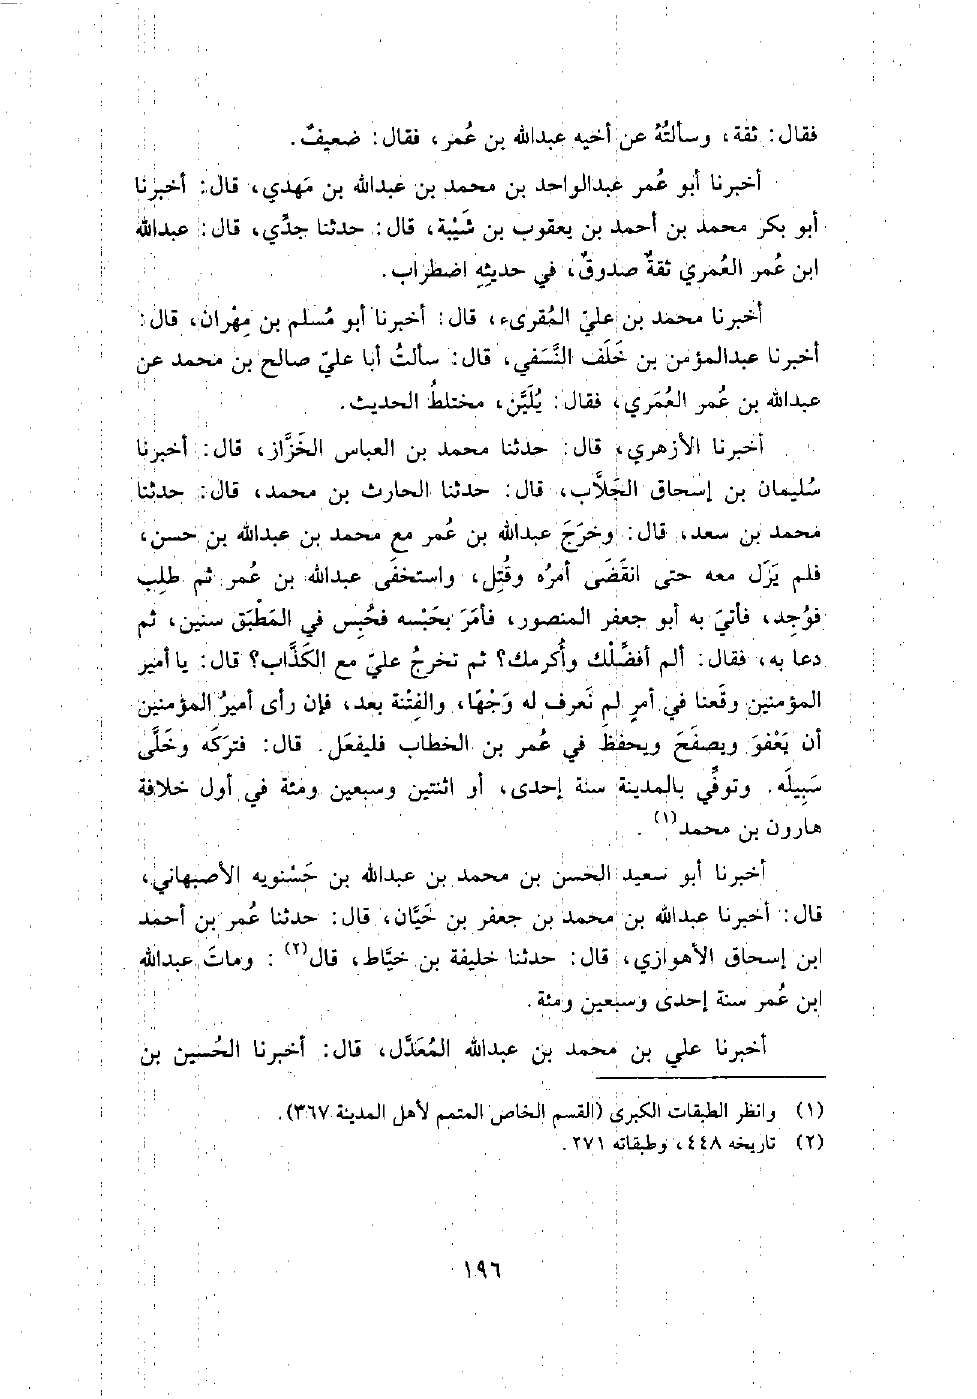 فقال: ثقة، وسألتُهُ عن أخيه عبدالله بن عُمر، فقال: ضعيفٌ.
أخبرنا أبو عُمر عبدالواحد بن محمد بن عبدالله بن مَهدي، قال: أخبرنا
أبو بكر محمد بن أحمد بن يعقوب بن شَيْبة، قال: حدثنا جدِّي، قال: عبدالله
ابن عُمر العُمري ثقةٌ صدوقٌ، في حديثِهِ اضطراب.
أخبرنا محمد بن عليّ المُقرىء، قال: أخبرنا أبو مُسلم بن مِهْران، قال:
أخبرنا عبدالمؤمن بن خَلَف النَّسَفي، قال: سألتُ أبا عليّ صالح بن محمد عن
عبدالله بن عُمر العُمَري، فقال: يُلَيَّن، مختلطُ الحديث.
أخبرنا الأزهري، قال: حدثنا محمد بن العباس الخَزَّاز، قال: أخبرنا
سُليمان بن إسحاق الجَلَّاب، قال: حدثنا الحارث بن محمد، قال: حدثنا
محمد بن سعد، قال: وخرَجَ عبدالله بن عُمر مع محمد بن عبدالله بن حسن،
فلم يَزَل معه حتى انقَضَى أمرُه وقُتِل، واستخفَى عبدالله بن عُمر ثم طلِب
فوُجِد، فأتيَ به أبو جعفر المنصور، فأمَرَ بحَبْسه فحُبِس في المَطْبَق سنين، ثم
دعا به، فقال: ألم أفضِّلْك وأُكرمك؟ ثم تخرجُ عليّ مع الكَذَّاب؟ قال: يا أمير
المؤمنين وقَعنا في أمرٍ لم نَعرف له وَجْهًا، والفِتْنة بعد، فإن رأى أميرُ المؤمنين
أن يَعْفوَ ويصفَحَ ويحفظَ في عُمر بن الخطاب فليفعَل. قال: فترَكَه وخَلَّى
سَبِيلَه. وتوفِّي بالمدينة سنة إحدى، أو اثنتين وسبعين ومئة في أول خلافة
هارون بن محمد(١).
أخبرنا أبو سعيد الحسن بن محمد بن عبدالله بن حَسْنويه الأصبهاني،
قال: أخبرنا عبدالله بن محمد بن جعفر بن حَيَّان، قال: حدثنا عُمر بن أحمد
ابن إسحاق الأهوازي، قال: حدثنا خليفة بن خيَّاط، قال(٢): وماتَ عبدالله
ابن عُمر سنة إحدى وسبعين ومئة.
أخبرنا علي بن محمد بن عبدالله المُعَدَّل، قال: أخبرنا الحُسين بن
(١) وانظر الطبقات الكبرى (القسم الخاص المتمم لأهل المدينة ٣٦٧).
(٢) تاريخه ٤٤٨، وطبقاته ٢٧١.
١٩٦